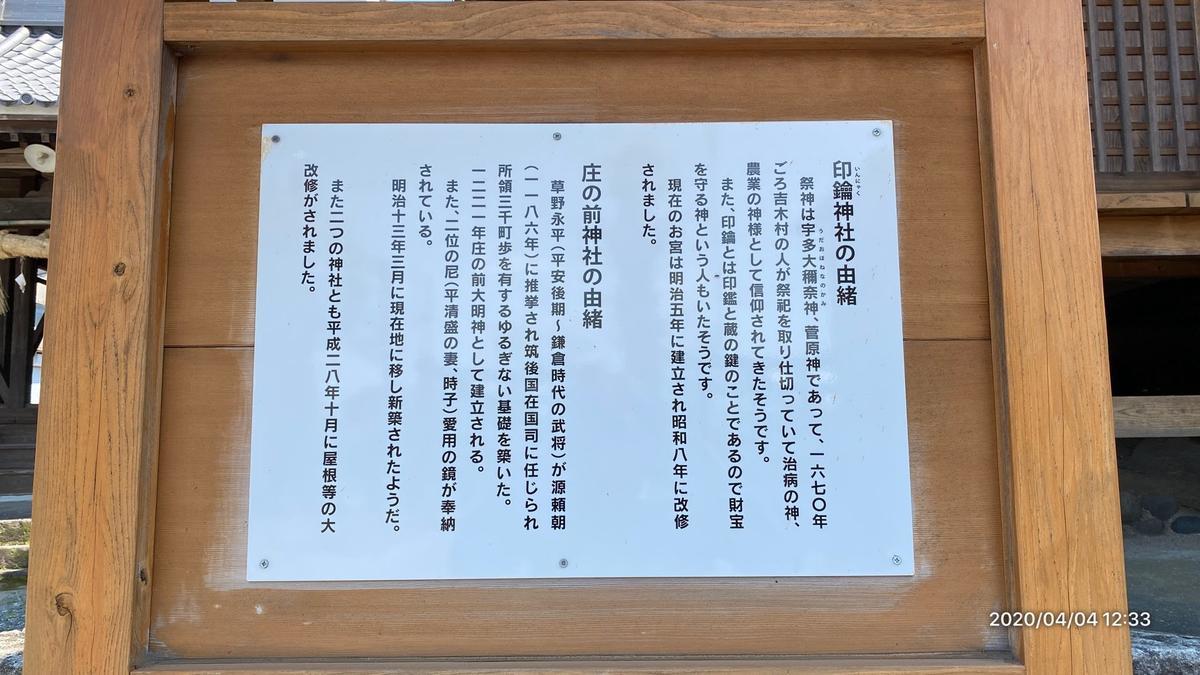 印鑰神社の由緒
いんにゃく
祭神は宇多大穪奈神、菅原神であって、一六七〇年
うだおほねなのかみ
ごろ吉木村の人が祭祀を取り仕切っていて治病の神、
農業の神様として信仰されてきたそうです。
また、印鑰とは印鑑と蔵の鍵のことであるので財宝
を守る神という人もいたそうです。
現在のお宮は明治五年に建立され昭和八年に改修
されました。
庄の前神社の由緒
草野永平(平安後期～鎌倉時代の武将)が源頼朝
(一一八六年)に推挙され筑後国在国司に任じられ
所領三千町歩を有するゆるぎない基礎を築いた。
一二二一年庄の前大明神として建立される。
また、二位の尼(平清盛の妻、時子)愛用の鏡が奉納
されている。
明治十三年三月に現在地に移し新築されたようだ。
また二つの神社とも平成二八年十月に屋根等の大
改修がされました。
2020/04/04 12:33